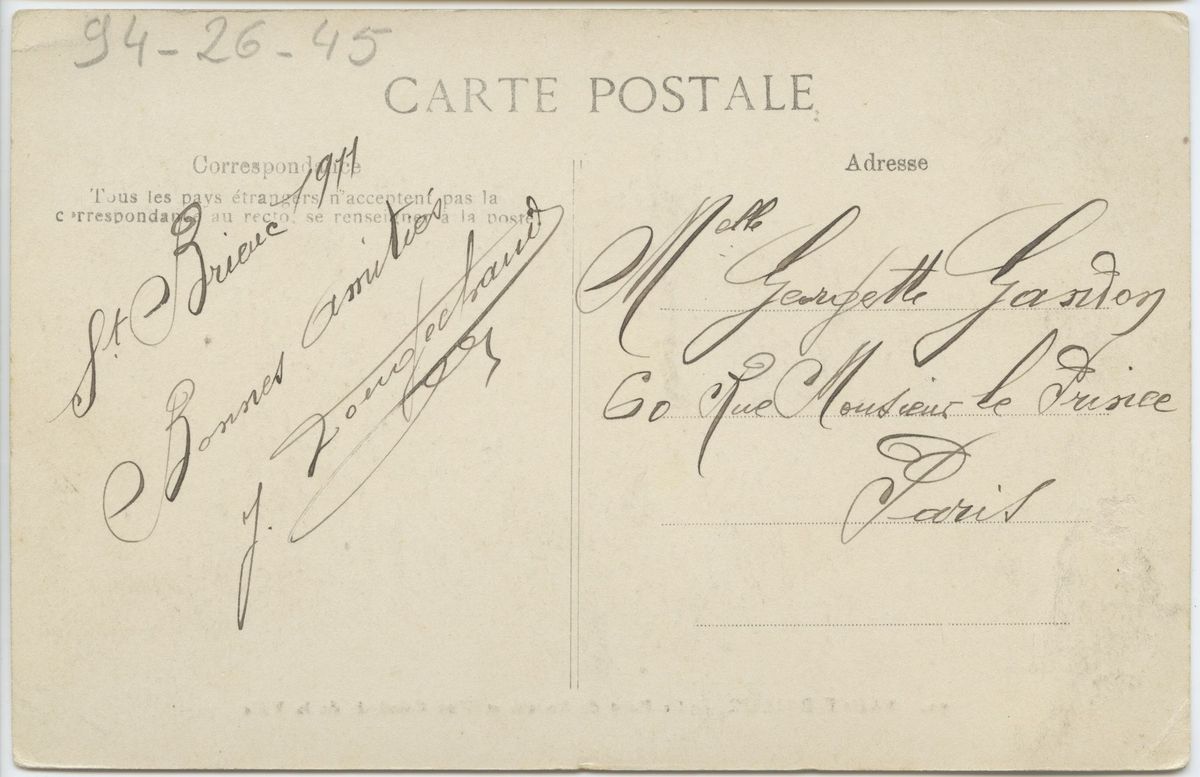 94-26-45
CARTE POSTALE
Correspondance
Tous les pays étrangers n'acceptent pas la
correspondance au recto, se renseigner à la poste
St Brieuc 1911
Bonnes amitiés
J.
Adresse
Melle Georgette Gandon
60 Rue Monsieur le Prince
Paris